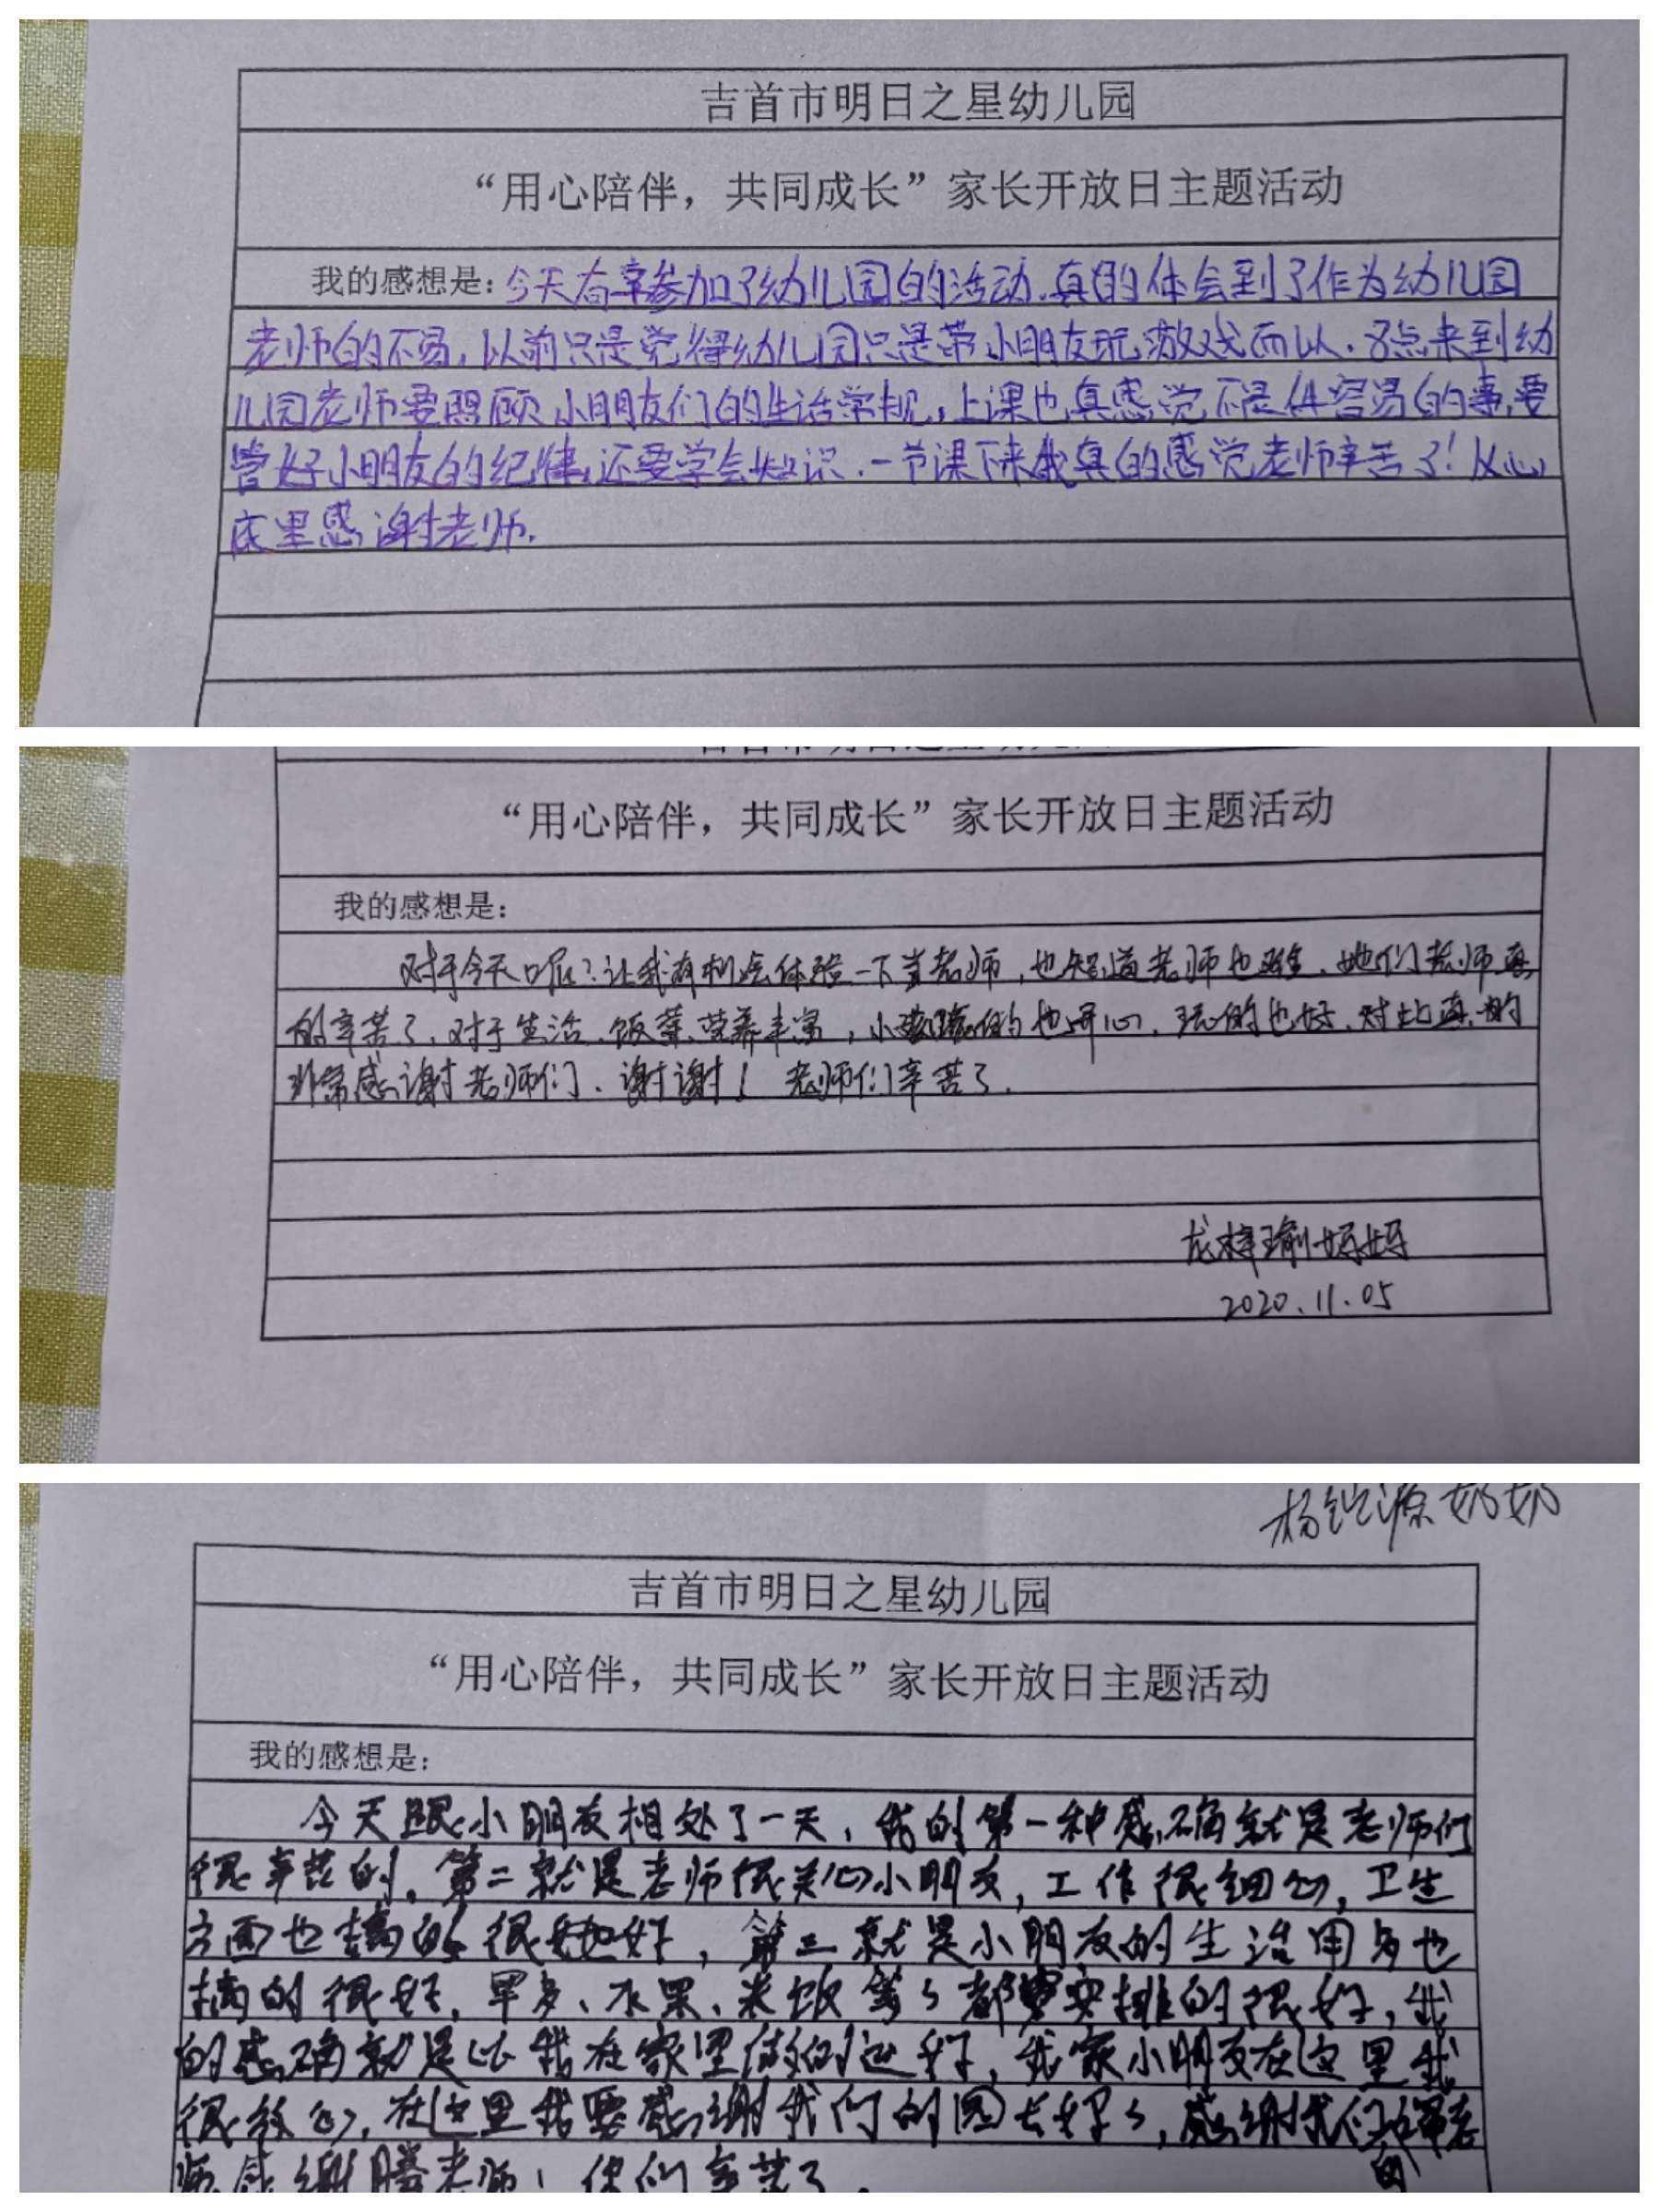 吉首市明日之星幼儿园
“用心陪伴，共同成长”家长开放日主题活动
我的感想是：今天有幸参加了幼儿园的活动.真的体会到了作为幼儿园
老师的不易，以前只是觉得幼儿园只是带小朋友玩游戏而以.8点来到幼
儿园老师要照顾小朋友们的生活常规，上课也真感觉不是件容易的事，要
管好小朋友的纪律，还要学会知识.一节课下来我真的感觉老师辛苦了！从心
底里感谢老师.
“用心陪伴，共同成长”家长开放日主题活动
我的感想是：
对于今天呢？让我有机会体验一下当老师，也知道老师也难.她们老师真
的辛苦了.对于生活.饭菜.营养丰富，小孩的也开心.玩的也好.对此真的
非常感谢老师们.谢谢！老师们辛苦了.
龙梓瑜妈妈
2020.11.05
杨铠源奶奶
吉首市明日之星幼儿园
“用心陪伴，共同成长”家长开放日主题活动
我的感想是：
今天跟小朋友相处了一天，我的第一种感确就是老师们
很辛苦的.第二就是老师很关心小朋友，工作很细心，卫生
方面也搞的很好，第三就是小朋友的生活用多也
搞的很好，早多、水果、米饭等等都安排的很好，我
的感确就是比我在家里做的还好，我家小朋友在这里我
很放心，在这里我要感谢我们的园长好，感谢我们的老
师感谢腾老师！你们辛苦了.